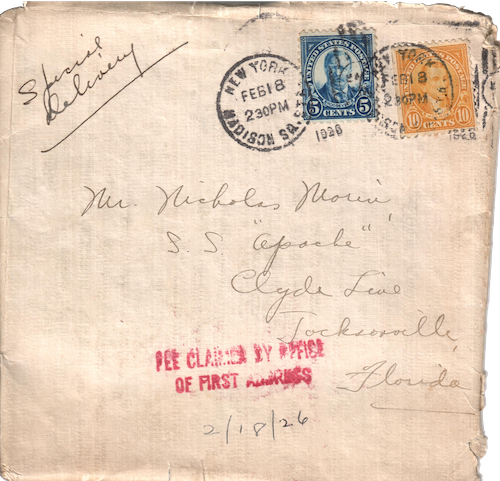 Special
Delivery
NEW YORK, N.Y.
FEB 18
2 30 PM
1926
MADISON SQ. STA.
UNITED STATES POSTAGE
5 CENTS 5
NEW YORK
FEB 18
2 30 PM
1926
10 CENTS 10
Mr. Nicholas Morin
S.S "Apache"
Clyde Line
Jacksonville
Florida
FEE CLAIMED BY OFFICE
OF FIRST ADDRESS
2/18/26